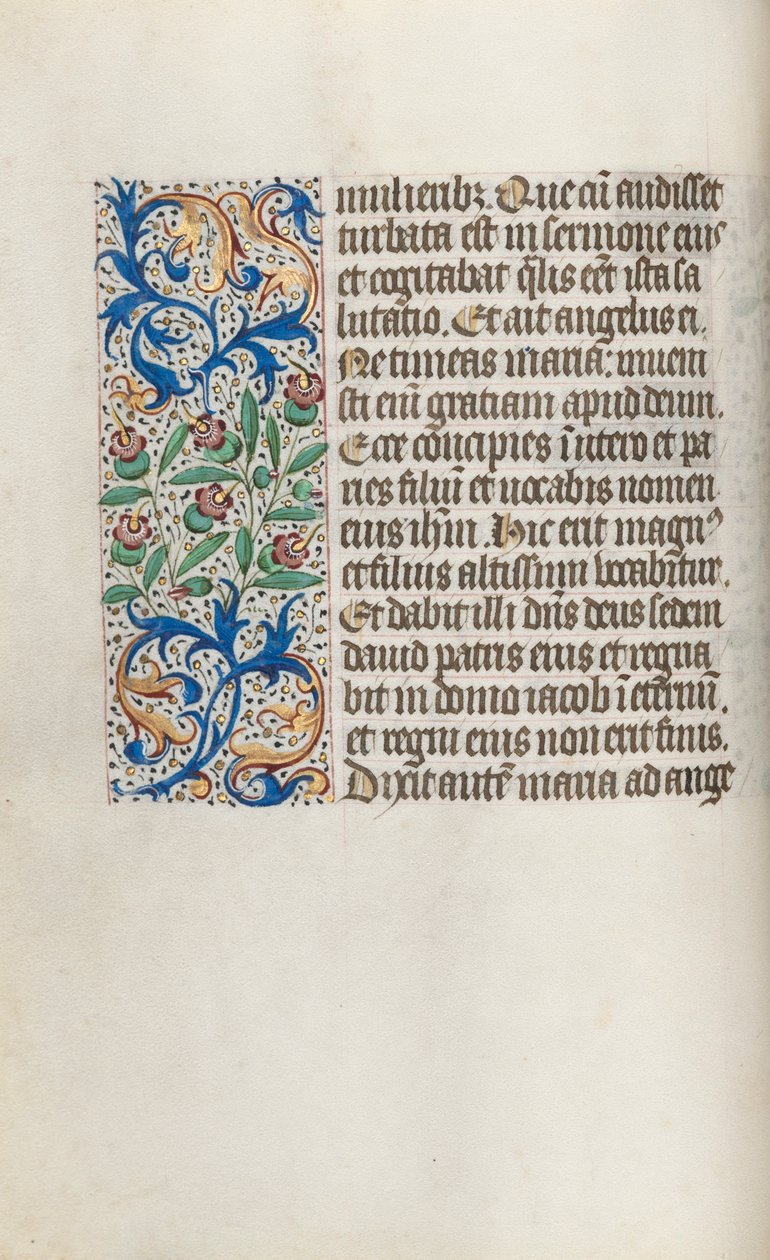 mulieribꝫ. Que cū audisset
turbata est in sermone eius
et cogitabat q̄lis eēt ista sa
lutatio. Et ait angelus ei.
Ne timeas maria: inueni
sti eni gratiam apud deum.
Ecce concipies in utero et pa
ries filiū et uocabis nomen
eius ihm̄. Hic erit magnꝰ
et filius altissimi vocabitur.
Et dabit illi dn̄s deus sedem
dauid patris eius et regna
bit in domo iacob ī eternū.
et regni eius non erit finis.
Dixit autē maria ad ange